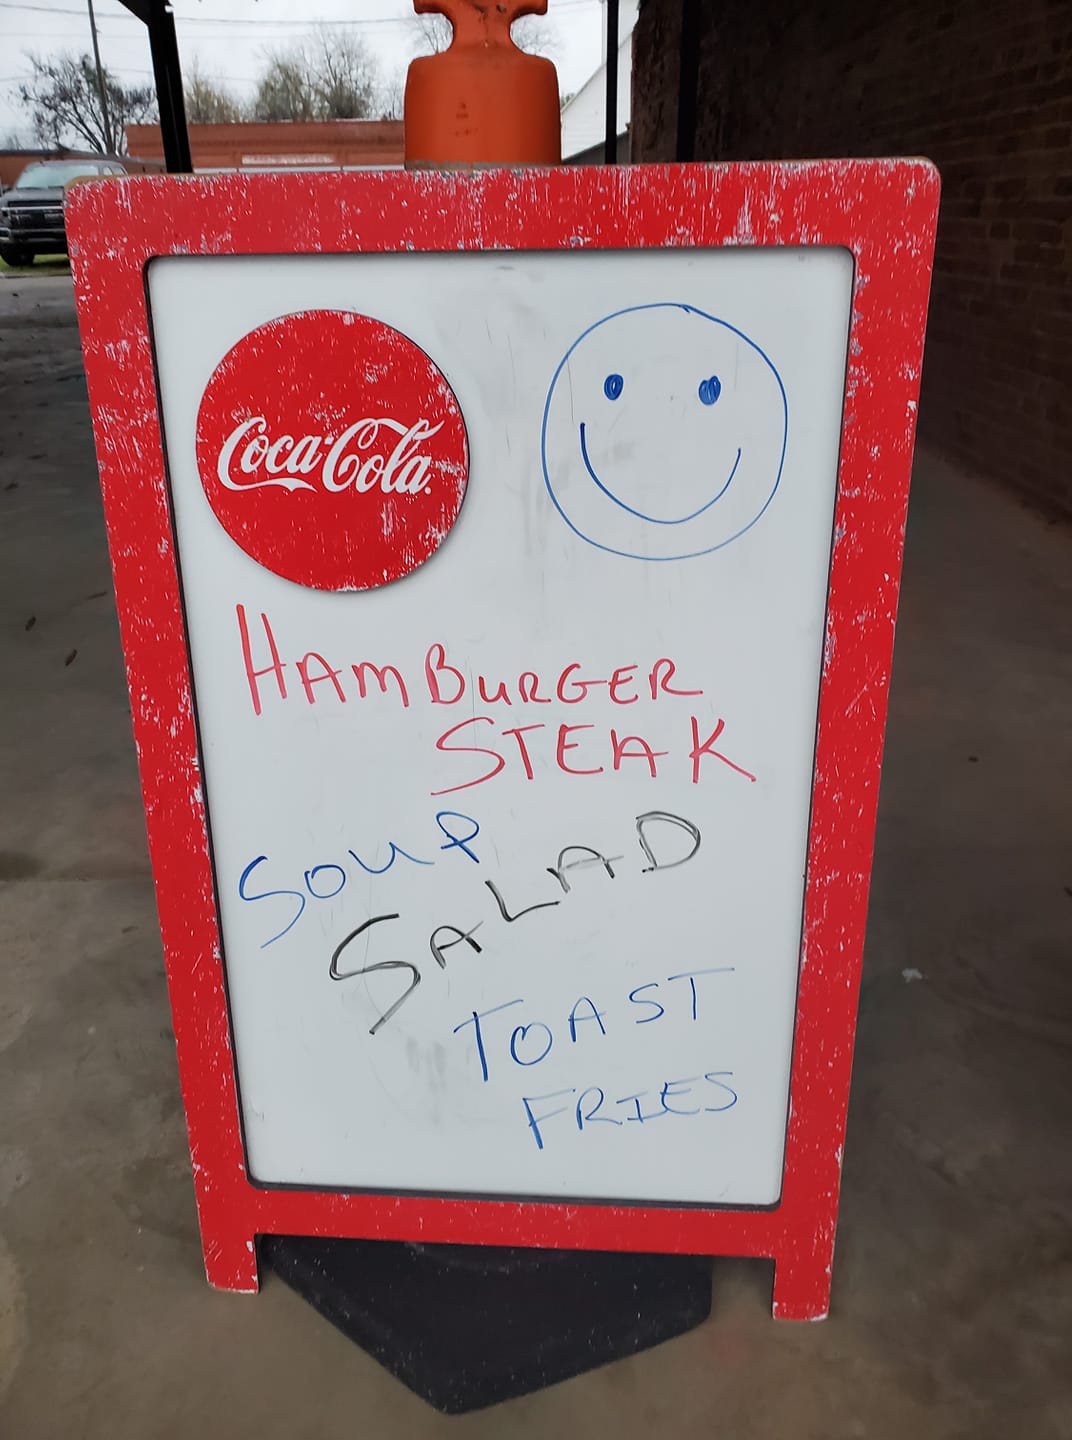 Coca-Cola
HAMBURGER
STEAK
SOUP
SALAD
TOAST
FRIES